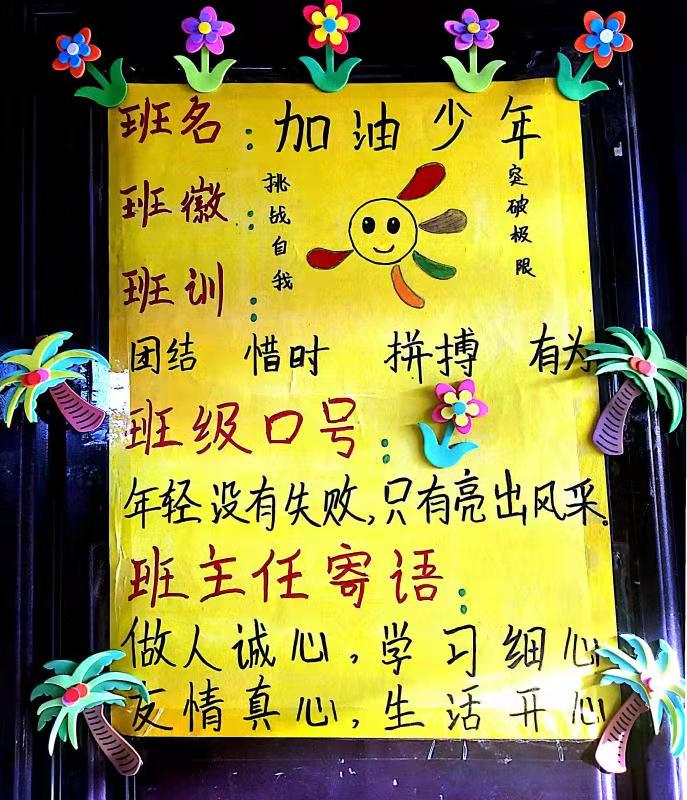 班名：加油少年
班徽：
挑战自我
突破极限
班训：
团结 惜时 拼搏 有为
班级口号：
年轻没有失败,只有亮出风采。
班主任寄语：
做人诚心,学习细心
友情真心,生活开心